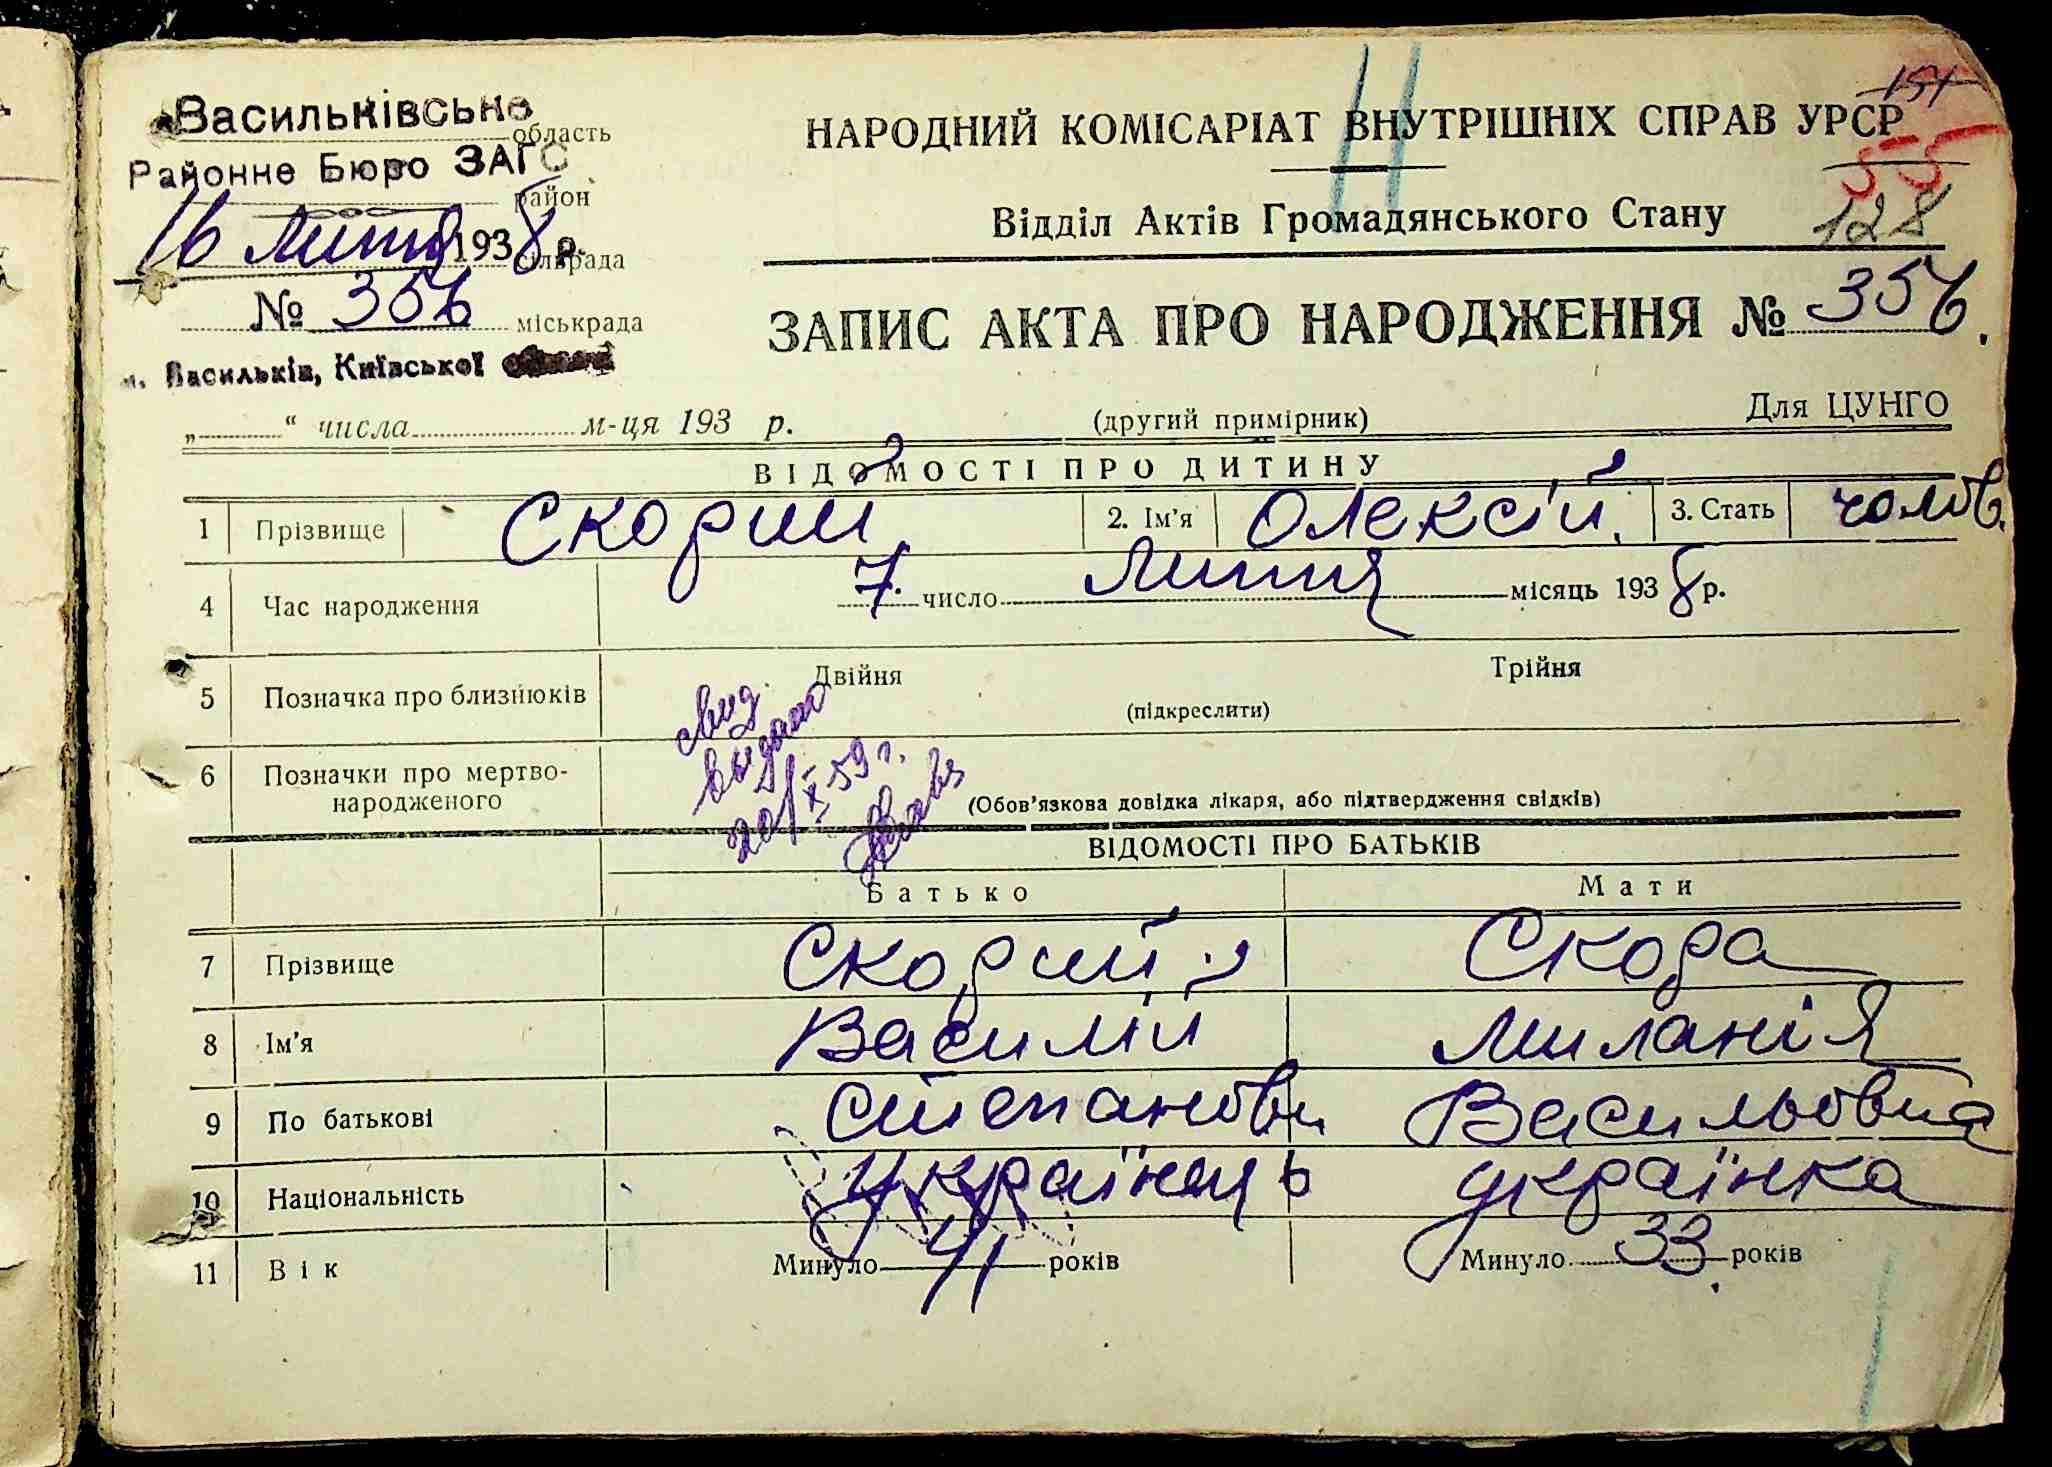 Васильківське
область
Районне Бюро ЗАГС
район
16 липня 1938 р.
сільрада
№ 356
міськрада
м. Васильків, Київської
„ “ числа м-ця 193 р.
НАРОДНИЙ КОМІСАРІАТ ВНУТРІШНІХ СПРАВ УРСР
151
55
128
Відділ Актів Громадянського Стану
ЗАПИС АКТА ПРО НАРОДЖЕННЯ № 356.
(другий примірник)
Для ЦУНГО
ВІДОМОСТІ ПРО ДИТИНУ
1 Прізвище Скорий 2. Ім'я Олексій. 3. Стать чолов.
4 Час народження 7. число липня місяць 1938 р.
5 Позначка про близнюків Двійня Трійня
(підкреслити)
6 Позначки про мертво-
народженого
(Обов'язкова довідка лікаря, або підтвердження свідків)
свид.
выдано
20/X 59 г.
ВІДОМОСТІ ПРО БАТЬКІВ
Батько Мати
7 Прізвище Скорий Скора
8 Ім'я Василій Миланія
9 По батькові Степанови Васильовна
10 Національність Українець українка
11 Вік Минуло 41 років Минуло 33 років